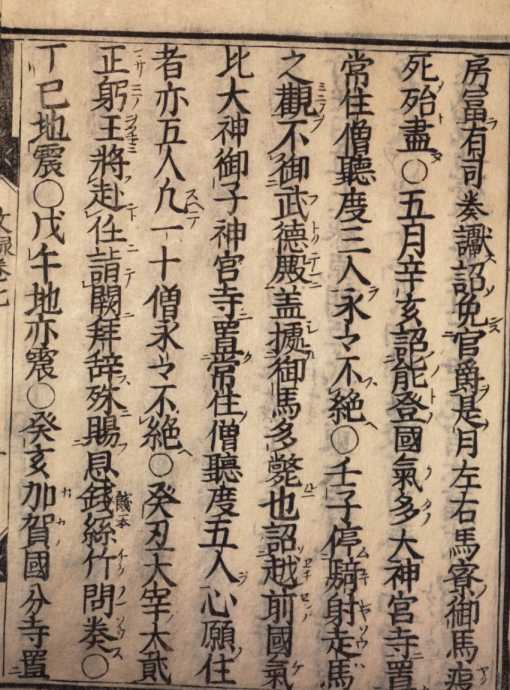 房富有司奏讞詔免官爵是月左右馬寮御馬疫
死殆盡○五月辛亥詔能登國氣多大神宮寺置
常住僧聽度三人永々不絶○壬子停騎射走馬
之觀不御武德殿盖據御馬多斃也詔越前國氣
比大神御子神宮寺置常住僧聽度五人心願住
者亦五人凢一十僧永々不絶○癸丑大宰大貳
正躬王將赴任詣闕拜辞殊賜恩錢絲竹間奏○
丁巳地震○戊午地亦震○癸亥加賀國分寺置